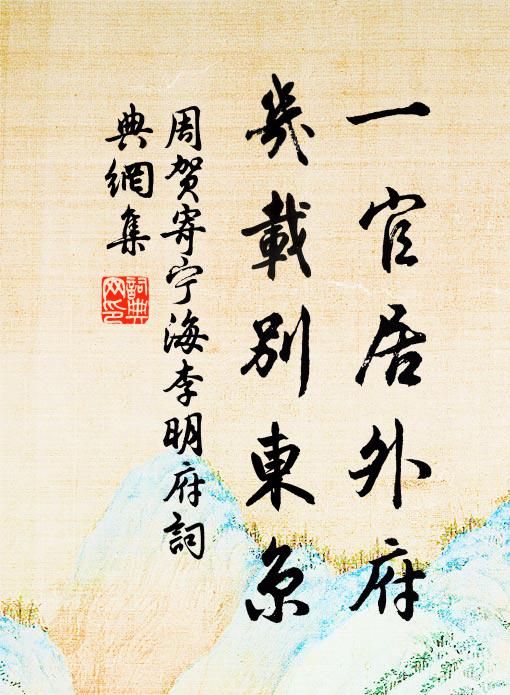 一官居外府
幾載別東京
周贺寄宁海李明府詞
典網集
詞典
网印